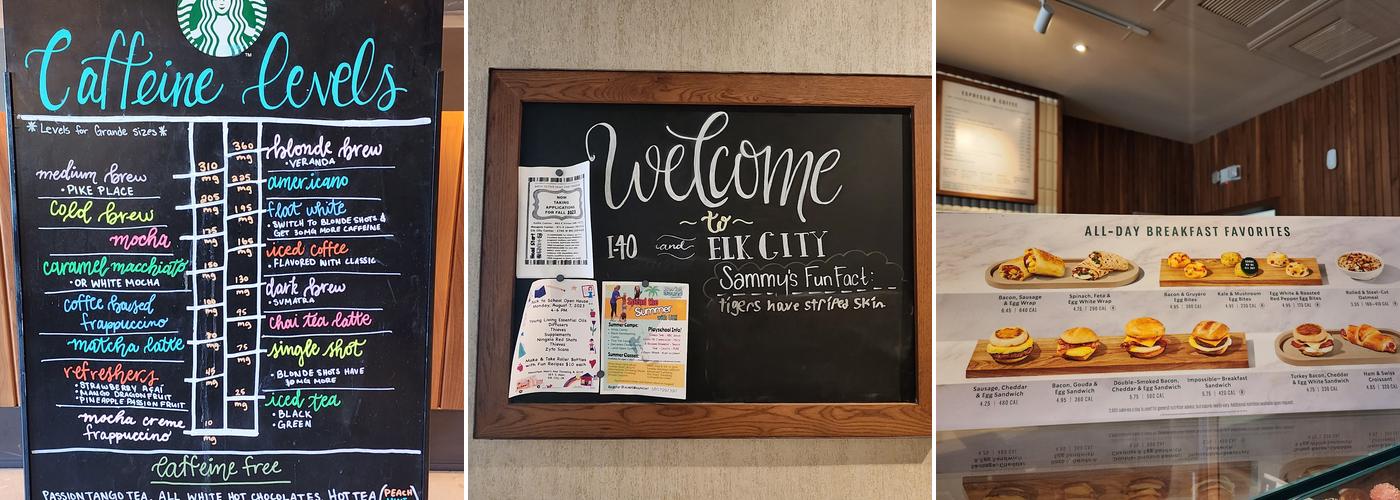 Caffeine Levels
*Levels for Grande sizes*
360 mg
blonde brew
• VERANDA
310 mg
medium brew
• PIKE PLACE
225 mg
americano
205 mg
cold brew
195 mg
flat white
• SWITCH TO BLONDE SHOTS &
GET 30MG MORE CAFFEINE
175 mg
mocha
165 mg
iced coffee
• FLAVORED WITH CLASSIC
150 mg
caramel macchiato
• OR WHITE MOCHA
130 mg
dark brew
• SUMATRA
100 mg
coffee based
frappuccino
95 mg
chai tea latte
70 mg
matcha latte
75 mg
single shot
• BLONDE SHOTS HAVE
10MG MORE
45 mg
refreshers
• STRAWBERRY AÇAÍ
• MANGO DRAGONFRUIT
• PINEAPPLE PASSION FRUIT
25 mg
iced tea
• BLACK
• GREEN
10 mg
mocha creme
frappuccino
caffeine free
PASSION TANGO TEA, ALL WHITE HOT CHOCOLATES, HOT TEA (PEACH
Welcome
~to~
I-40 and ELK CITY
Sammy's Fun Fact:
tigers have striped skin
NOW
TAKING
APPLICATIONS
FOR FALL 2023
Back to School Open House
Monday, August 7, 2023
4-6 PM
Young Living Essential Oils
Diffusers
Thieves
Supplements
Ningxia Red Shots
Thieves
Zyto Scans
Make & Take Roller Bottles
with Fun Recipes $10 each
Spend the
Summer
with US!
Summer Camps:
Playschool Info!
Summer Classes:
ESPRESSO & COFFEE
ALL-DAY BREAKFAST FAVORITES
Bacon, Sausage
& Egg Wrap
6.45 | 640 CAL
Spinach, Feta &
Egg White Wrap
4.75 | 290 CAL
Bacon & Gruyere
Egg Bites
Kale & Mushroom
Egg Bites
Egg White & Roasted
Red Pepper Egg Bites
Rolled & Steel-Cut
Oatmeal
Sausage, Cheddar
& Egg Sandwich
4.25 | 480 CAL
Bacon, Gouda &
Egg Sandwich
4.95 | 360 CAL
Double-Smoked Bacon,
Cheddar & Egg Sandwich
5.75 | 500 CAL
Impossible™ Breakfast
Sandwich
5.75 | 420 CAL
Turkey Bacon, Cheddar
& Egg White Sandwich
Ham & Swiss
Croissant